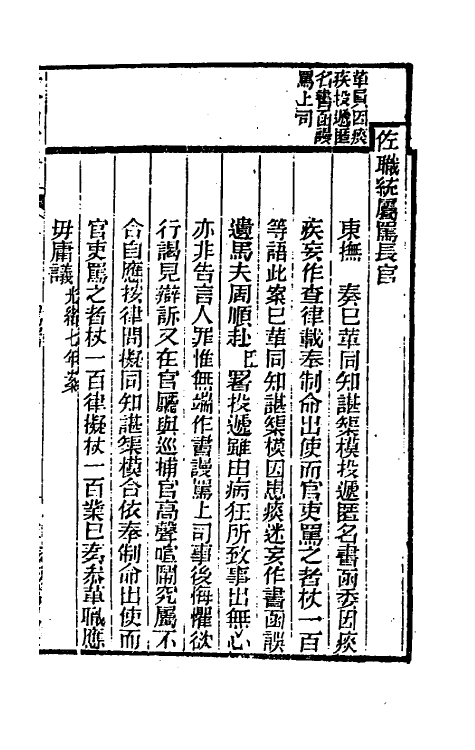 革員因痰
疾投遞匿
名書函謾
罵上司
佐職統屬罵長官
東撫　奏已革同知諶集模投遞匿名書函委因痰
疾妄作查律載奉制命出使而官吏罵之者杖一百
等語此案已革同知諶集模因患痰迷妄作書函誤
遺馬夫周順赴　署投遞雖由病狂所致事出無心
亦非告言人罪惟無端作書謾罵上司事後悔懼欲
行謁見辯訴又在官廳與巡捕官高聲喧鬧究屬不
合自應按律問擬同知諶集模合依奉制命出使而
官吏罵之者杖一百律擬杖一百業已奏恭革職應
毋庸議光緒七年案